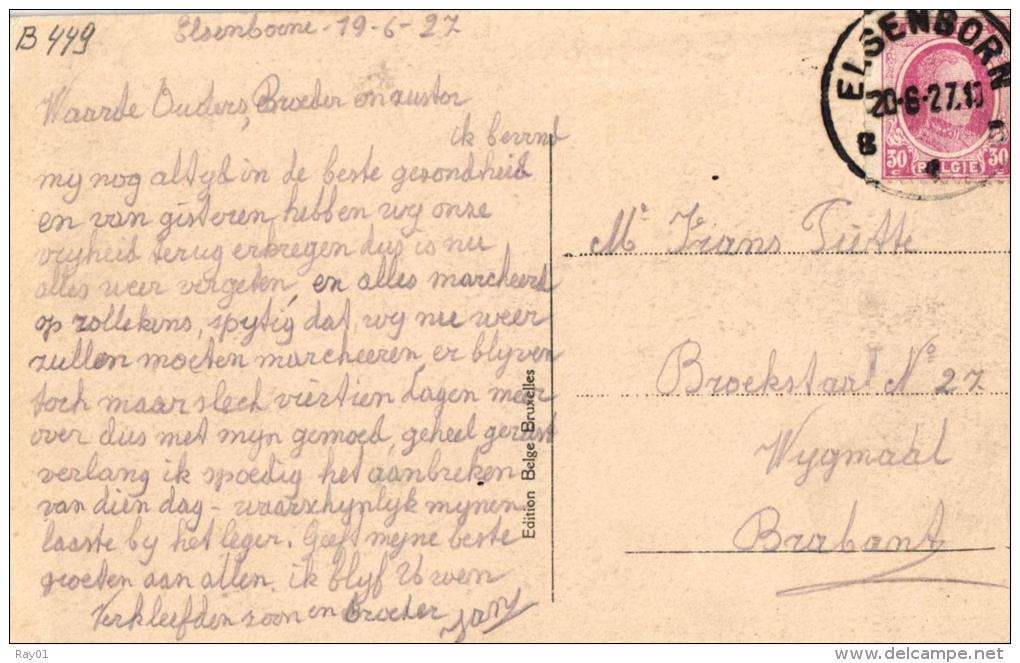 B 449
Elsenborne - 19-6-27
Waarde Ouders, Broeder en zuster
ik bevind
mij nog altijd in de beste gezondheid
en van gisteren hebben wij onze
vrijheid terug erkregen dus is nu
alles weer vergeten, en alles marcheerd
op rollekens, spijtig dat wij nu weer
zullen moeten marcheeren, er blijven
toch maar slech viertien dagen meer
over dus met mijn gemoed geheel gerust
verlang ik spoedig het aanbreken
van dien dag - waarschijnlijk mijnen
laaste bij het leger. Geeft mijne beste
groeten aan allen, ik blijf Uwen
Verkleefden zoon en Broeder Jany
ELSENBORN
20-6-27.
B
30c BELGIE 30c
Mr Frans Piette
Broekstaat No 27.
Wijgmaal
Brabant
Edition Belge Bruxelles
Ray01
delcampe.net